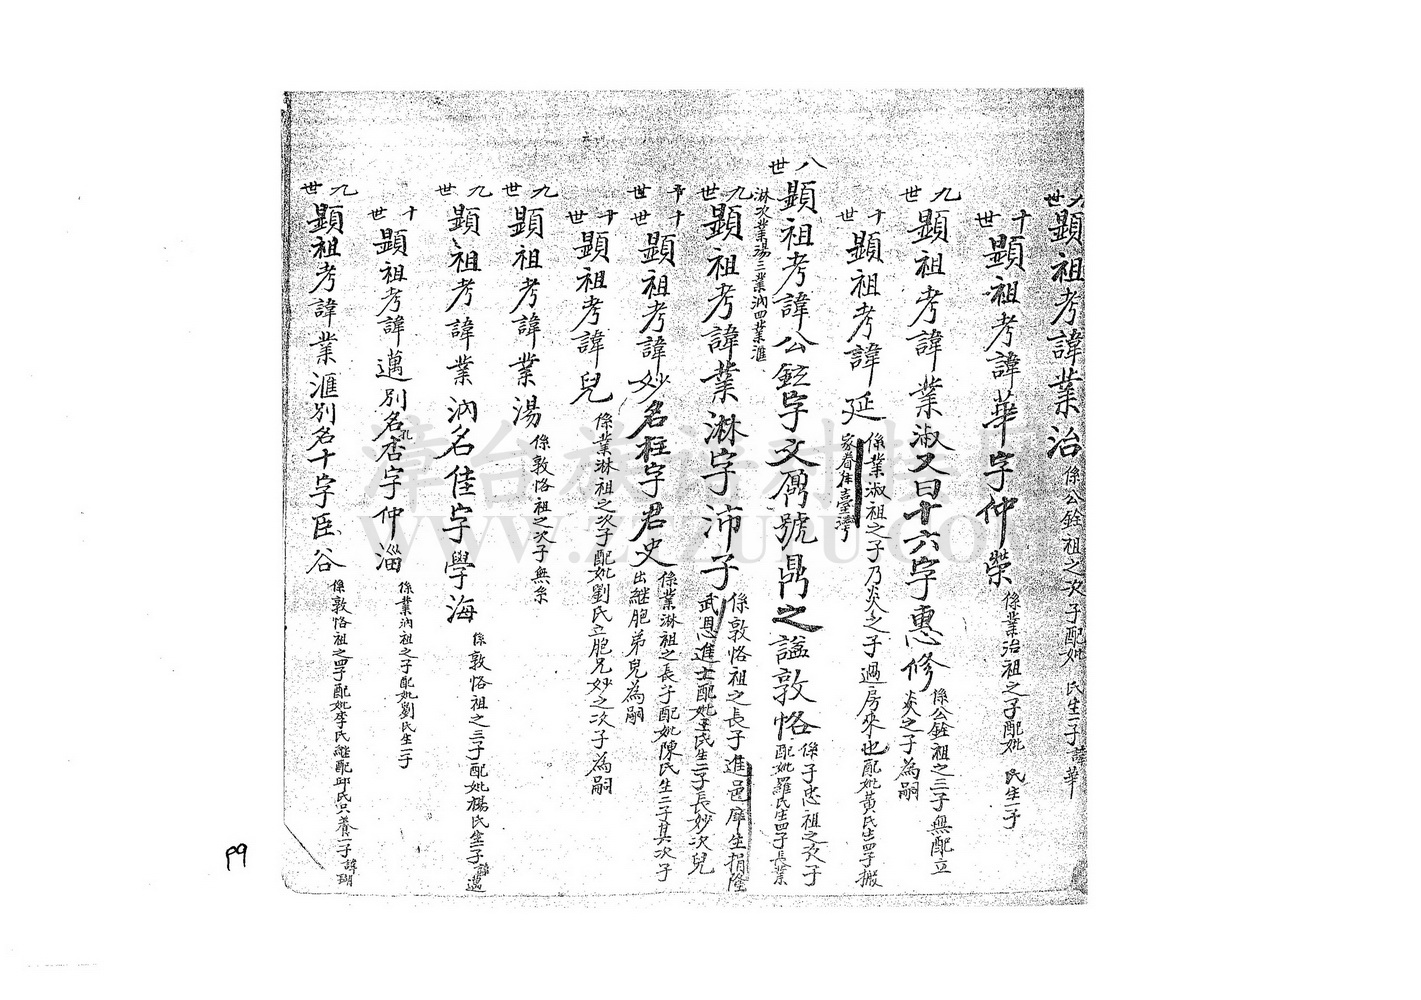 九世顯祖考諱業治 係公銓祖之次子配妣 氏生一子諱華
十世顯祖考諱華字仲榮 係業治祖之子配妣 氏生一子
九世顯祖考諱業淑又曰十六字惠修 係公銓祖之三子無配立
炎之子為嗣
十世顯祖考諱延 係業淑祖之子乃炎之子過房來也配妣黃氏生四子搬
家眷住臺灣
八世顯祖考諱公鉉字文鼐號鼎之謚敦恪 係子忠祖之次子
配妣羅氏生四子長業
淋次業湯三業汭四業滙
九世顯祖考諱業淋字沛子 係敦恪祖之長子進邑庠生捐隆
武恩進士配妣王氏生二子長妙次兒
十世顯祖考諱妙名枉字君史 係業淋祖之長子配妣陳氏生二子其次子
出繼胞弟兒為嗣
十世顯祖考諱兒 係業淋祖之次子配妣劉氏立胞兄妙之次子為嗣
九世顯祖考諱業湯 係敦恪祖之次子無系
九世顯祖考諱業汭名佳字學海 係敦恪祖之三子配妣楊氏生一子諱邁
十世顯祖考諱邁別名店字仲淄 係業汭祖之子配妣劉氏生一子
九世顯祖考諱業滙別名十字臣谷 係敦恪祖之四子配妣李氏繼配邱氏只養一子諱瑚
漳台族谱对接
www.ztzupu.com
P9